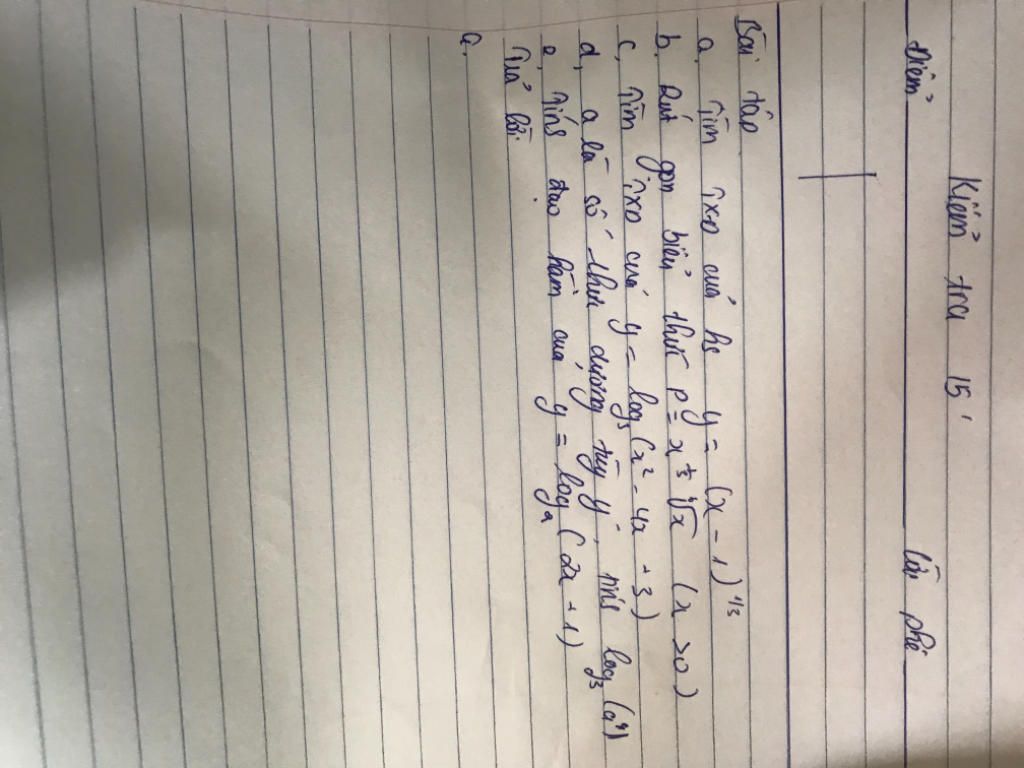 Kiểm tra 15'
Điểm Lời phê
Bài tập
a, Tìm TXĐ của hs y = (x - 1)^{1/3}
b, Rút gọn biểu thức P = x^{1/3} \sqrt{x} (x > 0)
c, Tìm TXĐ của y = log_3 (x² - 4x + 3)
d, a là số thực dương tùy ý, tính log_3 (a⁴)
e, Tính đạo hàm của y = log (2x + 1)
Trả lời.
a,